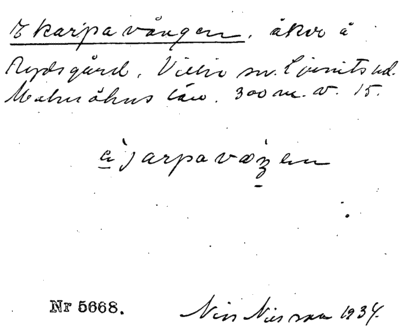 Skarpavången, åker å
Rydsgård, Villie sn. Ljunits hd.
Malmöhus län. 300 m. v. 15.
Nr 5668.
Nils Nilsson 1934.